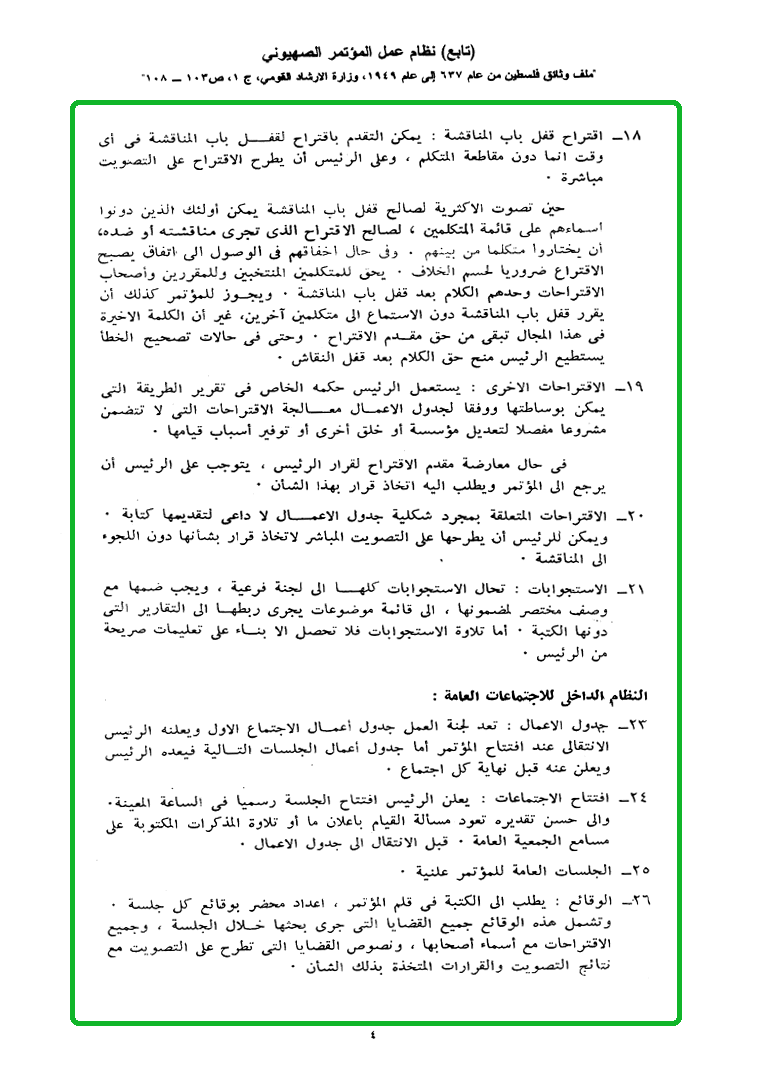 (تابع) نظام عمل المؤتمر الصهيوني
"ملف وثائق فلسطين من عام ٦٣٧ إلى عام ١٩٤٩، وزارة الارشاد القومي، ج ١، ص١٠٣ – ١٠٨"
١٨ــ اقتراح قفل باب المناقشة : يمكن التقدم باقتراح لقفــل باب المناقشة فى أى
وقت انما دون مقاطعة المتكلم ، وعلى الرئيس أن يطرح الاقتراح على التصويت
مباشرة ٠
حين تصوت الاكثرية لصالح قفل باب المناقشة يمكن أولئك الذين دونوا
اسماءهم على قائمة المتكلمين ، لصالح الاقتراح الذى تجرى مناقشته أو ضده،
أن يختاروا متكلما من بينهم ٠ وفى حال اخفاقهم فى الوصول الى اتفاق يصبح
الاقتراع ضروريا لحسم الخلاف ٠ يحق للمتكلمين المنتخبين وللمقررين وأصحاب
الاقتراحات وحدهم الكلام بعد قفل باب المناقشة ٠ ويجـوز للمؤتمر كذلك أن
يقرر قفل باب المناقشة دون الاستماع الى متكلمين آخرين، غير أن الكلمة الاخيرة
فى هذا المجال تبقى من حق مقـدم الاقتراح ٠ وحتى فى حالات تصحيح الخطأ
يستطيع الرئيس منح حق الكلام بعد قفل النقاش ٠
١٩ــ الاقتراحات الاخرى : يستعمل الرئيس حكمه الخاص فى تقرير الطريقة التى
يمكن بوساطتها ووفقا لجدول الاعمـال معــالجة الاقتراحات التى لا تتضمن
مشروعا مفصلا لتعديل مؤسسة أو خلق أخرى أو توفير أسباب قيامها ٠
فى حال معارضة مقدم الاقتراح لقرار الرئيس ، يتوجب على الرئيس أن
يرجع الى المؤتمر ويطلب اليه اتخاذ قرار بهذا الشأن ٠
٢٠ــ الاقتراحات المتعلقة بمجرد شكلية جدول الاعمــال لا داعى لتقديمها كتابة ٠
ويمكن للرئيس أن يطرحها على التصويت المباشر لاتخاذ قرار بشأنها دون اللجوء
الى المناقشة ٠
٢١ــ الاستجوابات : تحال الاستجوابات كلهــا الى لجنة فرعية ، ويجب ضمها مع
وصف مختصر لمضمونها ، الى قائمة موضوعات يجرى ربطهـا الى التقارير التى
دونها الكتبة ٠ أما تلاوة الاستجوابات فلا تحصل الا بنـاء على تعليمات صريحة
من الرئيس ٠
النظام الداخلى للاجتماعات العامة :
٢٣ــ جدول الاعمال : تعد لجنة العمل جدول أعمـال الاجتماع الاول ويعلنه الرئيس
الانتقالى عند افتتاح المؤتمر أما جدول أعمال الجلسات التـالية فيعده الرئيس
ويعلن عنه قبل نهاية كل اجتماع ٠
٢٤ــ افتتاح الاجتماعات : يعلن الرئيس افتتاح الجلسة رسميا فى الساعة المعينة٠
والى حسن تقديره تعود مسألة القيام باعلان ما أو تلاوة المذكرات المكتوبة على
مسامع الجمعية العامة ٠ قبل الانتقال الى جدول الاعمال ٠
٢٥ــ الجلسات العامة للمؤتمر علنية ٠
٢٦ــ الوقائع : يطلب الى الكتبة فى قلم المؤتمر ، اعداد محضر بوقائع كل جلسة ٠
وتشمل هذه الوقائع جميع القضايا التى جرى بحثها خـلال الجلسة ، وجميع
الاقتراحات مع أسماء أصحابها ، ونصوص القضايا التى تطرح على التصويت مع
نتائج التصويت والقرارات المتخذة بذلك الشأن ٠
٤